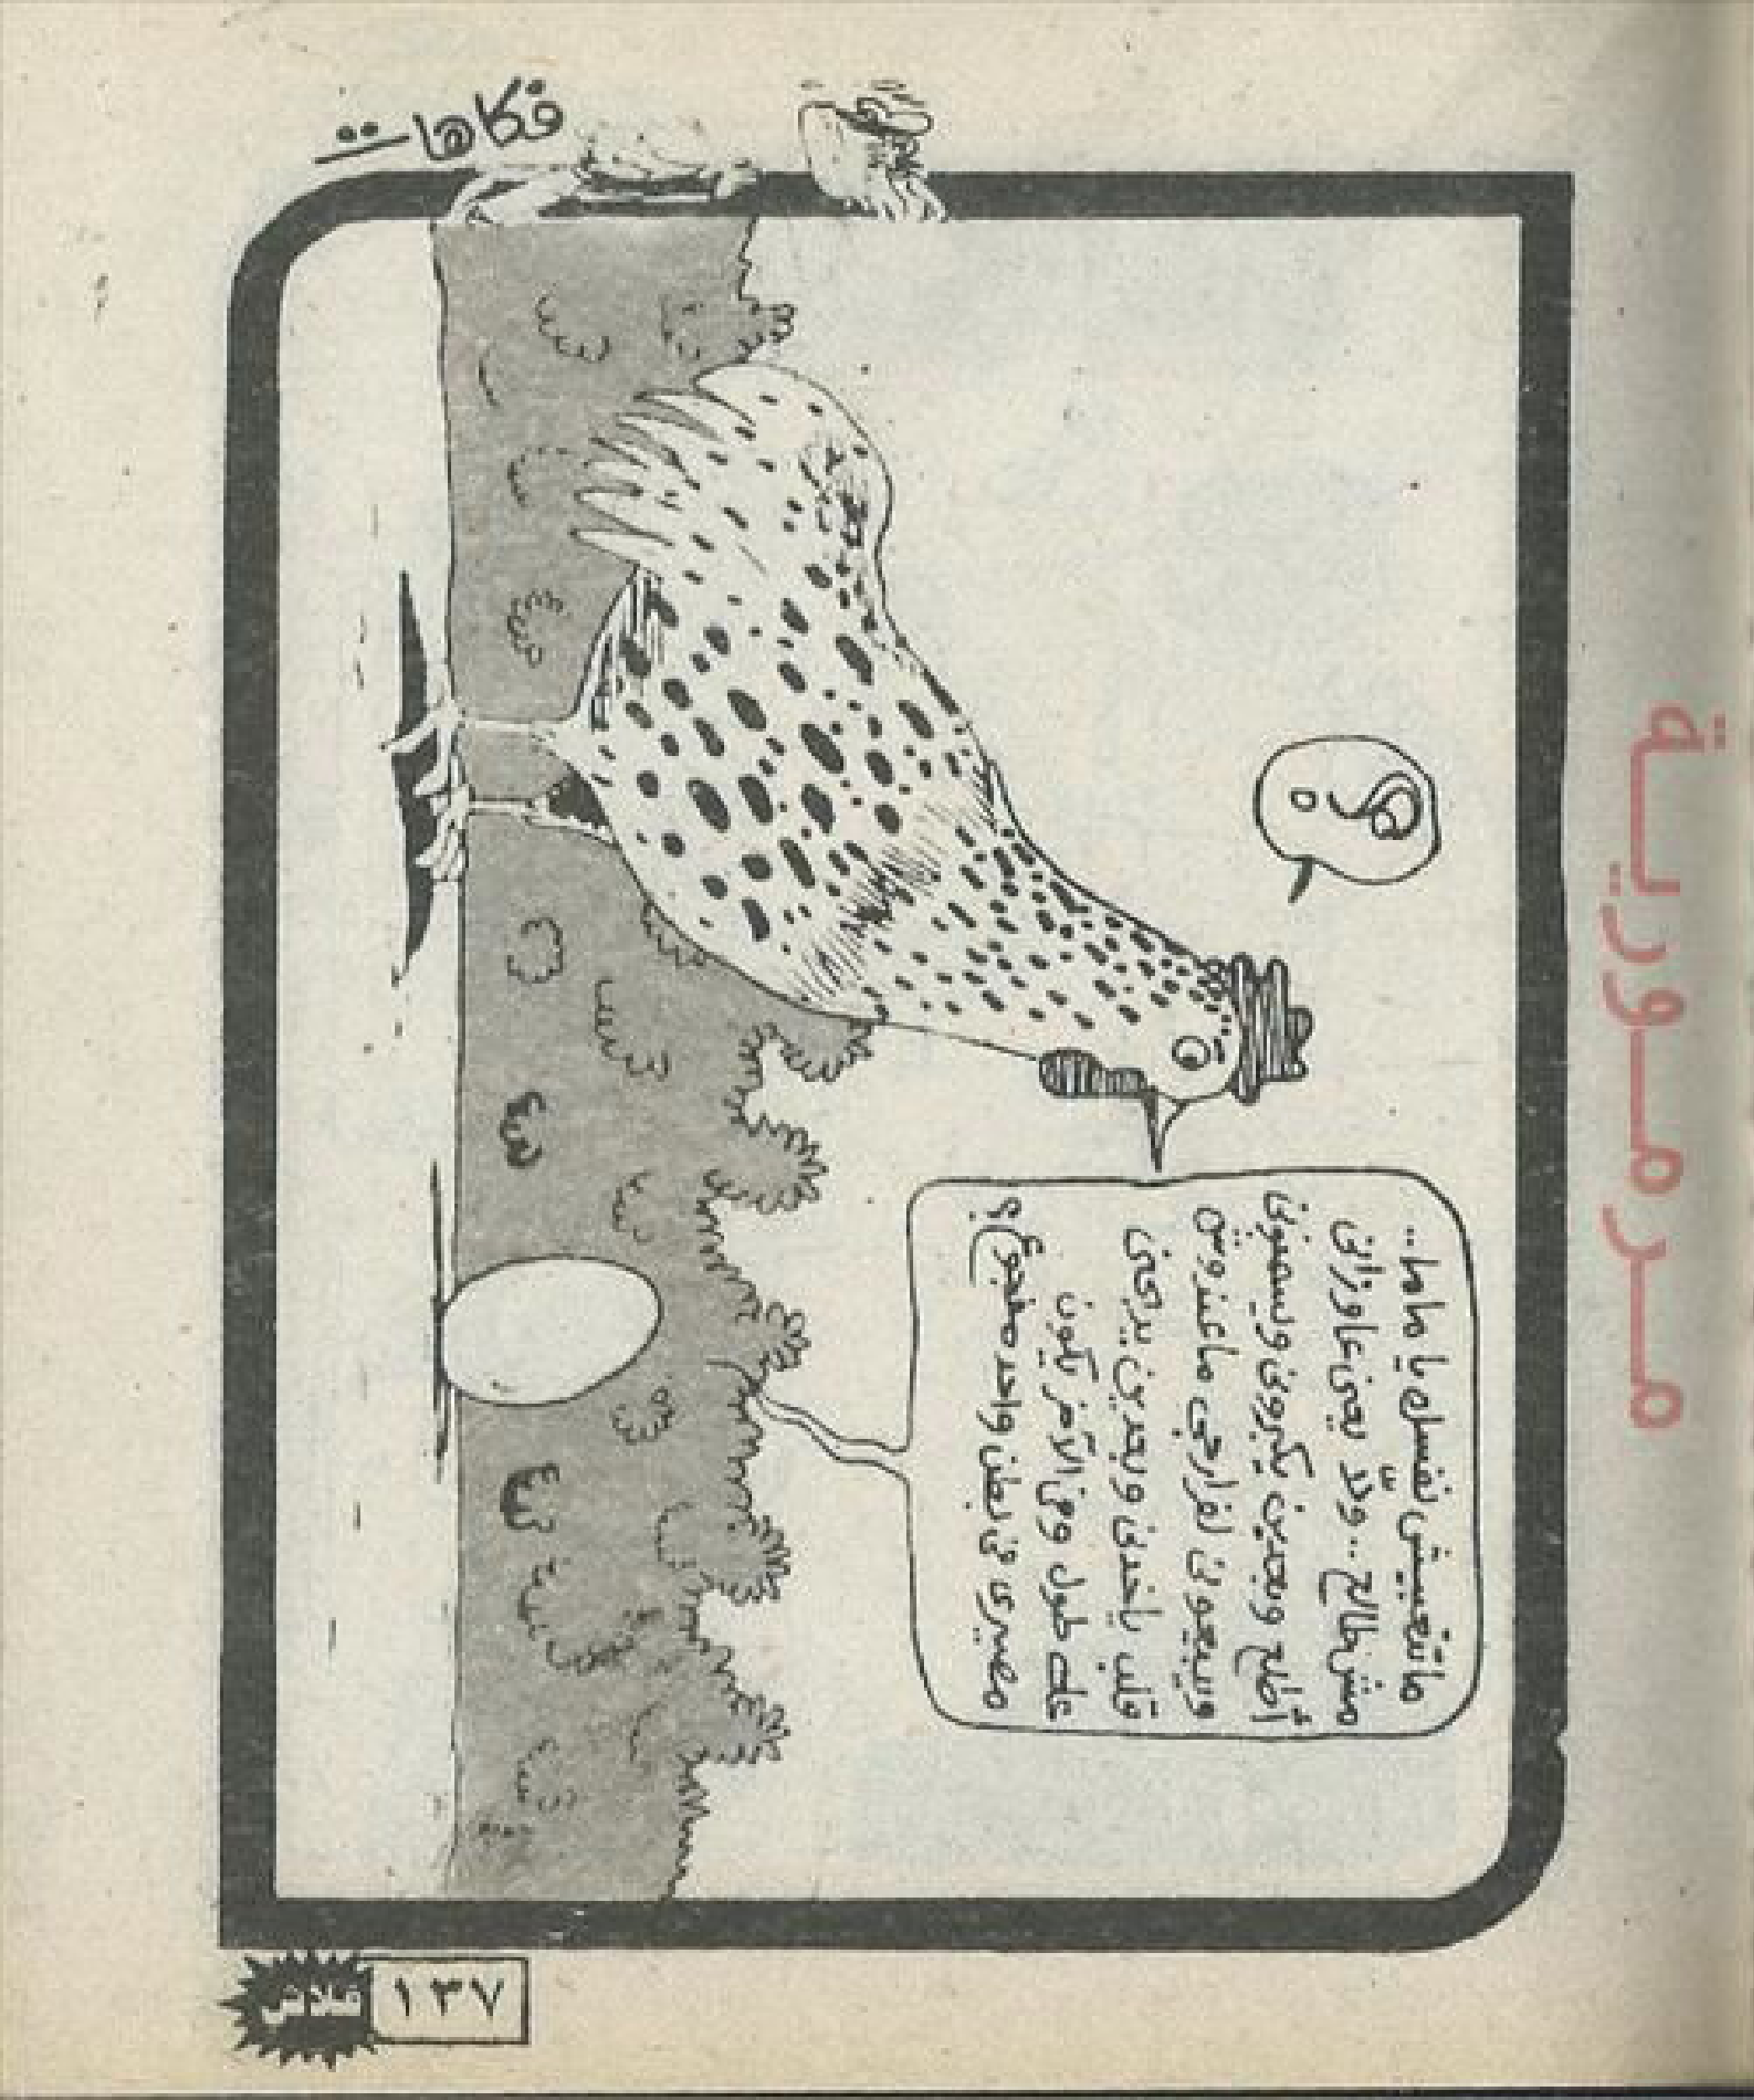 فكاهات
هى
ه
ماتتعبيش نفسك يا ماما..
مش طالع .. ولّا يعنى عاوزانى
أطلع وبعدين يكبرونى ويسمنونى
ويبيعونى لفرارجى ماعندوش
قلب ياخدنى وبعدين يدبحنى
على طول وفى الآخر يكون
مصيرى فى بطن واحد مفجوع؟
١٣٧
مرمورية